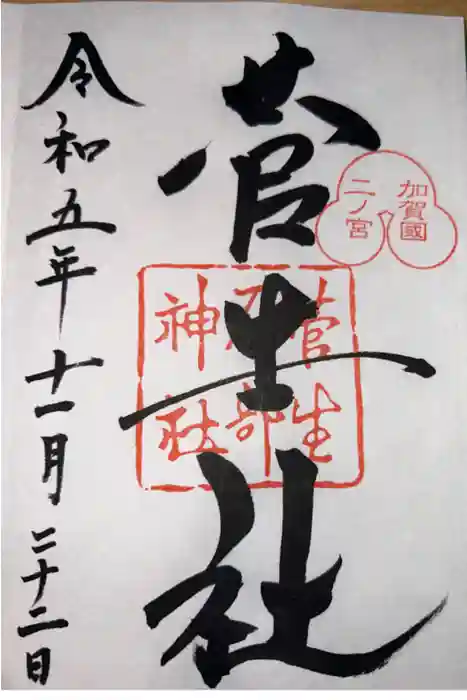 加賀國
二ノ宮
菅生社
菅生
石部
神社
令和五年十一月二十二日